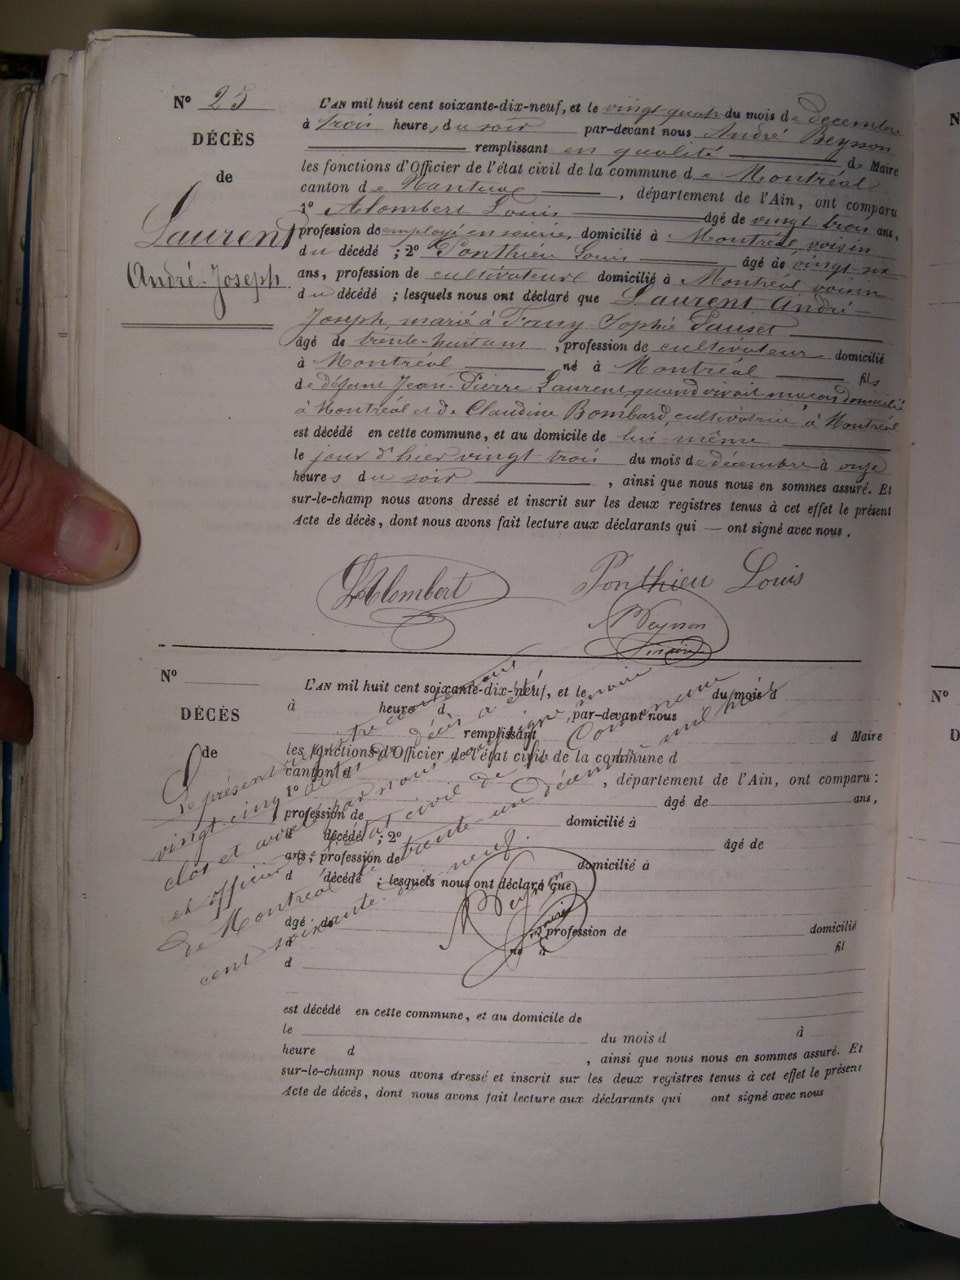 N° 25
DÉCÈS
de
Laurent
André-Joseph
L'AN mil huit cent soixante-dix-neuf, et le vingt-quatre du mois de decembre
à trois heures du soir par-devant nous André Beysson
remplissant en qualité de Maire
les fonctions d'Officier de l'état civil de la commune de Montréal
canton de Nantua, département de l'Ain, ont comparu
1° Alombert Louis âgé de vingt trois ans,
profession de employé en soierie, domicilié à Montréal voisin
du décédé ; 2° Ponthieu Louis âgé de vingt six
ans, profession de cultivateur domicilié à Montréal voisin
du décédé ; lesquels nous ont déclaré que Laurent André-
Joseph, marié à Fany Sophie
âgé de trente-huit ans, profession de cultivateur domicilié
à Montréal né à Montréal fils
de défunt Jean-Pierre Laurent quand vivait maçon domicilié
à Montréal et de Claudine Bombard, cultivatrice à Montréal
est décédé en cette commune, et au domicile de lui-même
le jour d'hier vingt trois du mois de décembre à onze
heures du soir, ainsi que nous nous en sommes assuré. Et
sur-le-champ nous avons dressé et inscrit sur les deux registres tenus à cet effet le présent
Acte de décès, dont nous avons fait lecture aux déclarants qui — ont signé avec nous.
L. Alombert
Ponthieu Louis
A Beysson
N°
DÉCÈS
de
L'AN mil huit cent soixante-dix-neuf, et le du mois d
à heure d par-devant nous
remplissant d Maire
les fonctions d'Officier de l'état civil de la commune d
canton d , département de l'Ain, ont comparu :
1° âgé de ans,
profession de domicilié à
d décédé ; 2° âgé de
ans, profession de domicilié à
d décédé ; lesquels nous ont déclaré que
âgé de profession de domicilié
à né à fil
d
est décédé en cette commune, et au domicile de
le du mois d à
heure d , ainsi que nous nous en sommes assuré. Et
sur-le-champ nous avons dressé et inscrit sur les deux registres tenus à cet effet le présent
Acte de décès, dont nous avons fait lecture aux déclarants qui ont signé avec nous
Le présent registre contenant
vingt-cinq actes de décès a été
clos et arrêté par nous soussigné maire
et officier de l'état civil de la Commune
de Montréal le trente-un décembre mil huit
cent soixante-dix-neuf.
A Beysson